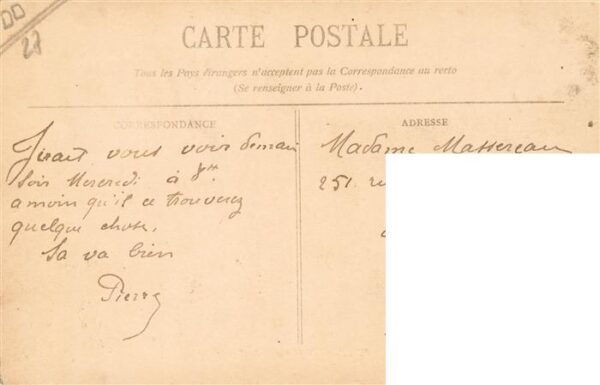 DD
27
CARTE POSTALE
Tous les Pays étrangers n'acceptent pas la Correspondance au recto
(Se renseigner à la Poste).
CORRESPONDANCE
Jirait vous voir demain
Soir Mercredi à 8H
a moin qu'il ce trouverez
quelque chose.
Sa va bien
Pierre
ADRESSE
Madame Massereau
251